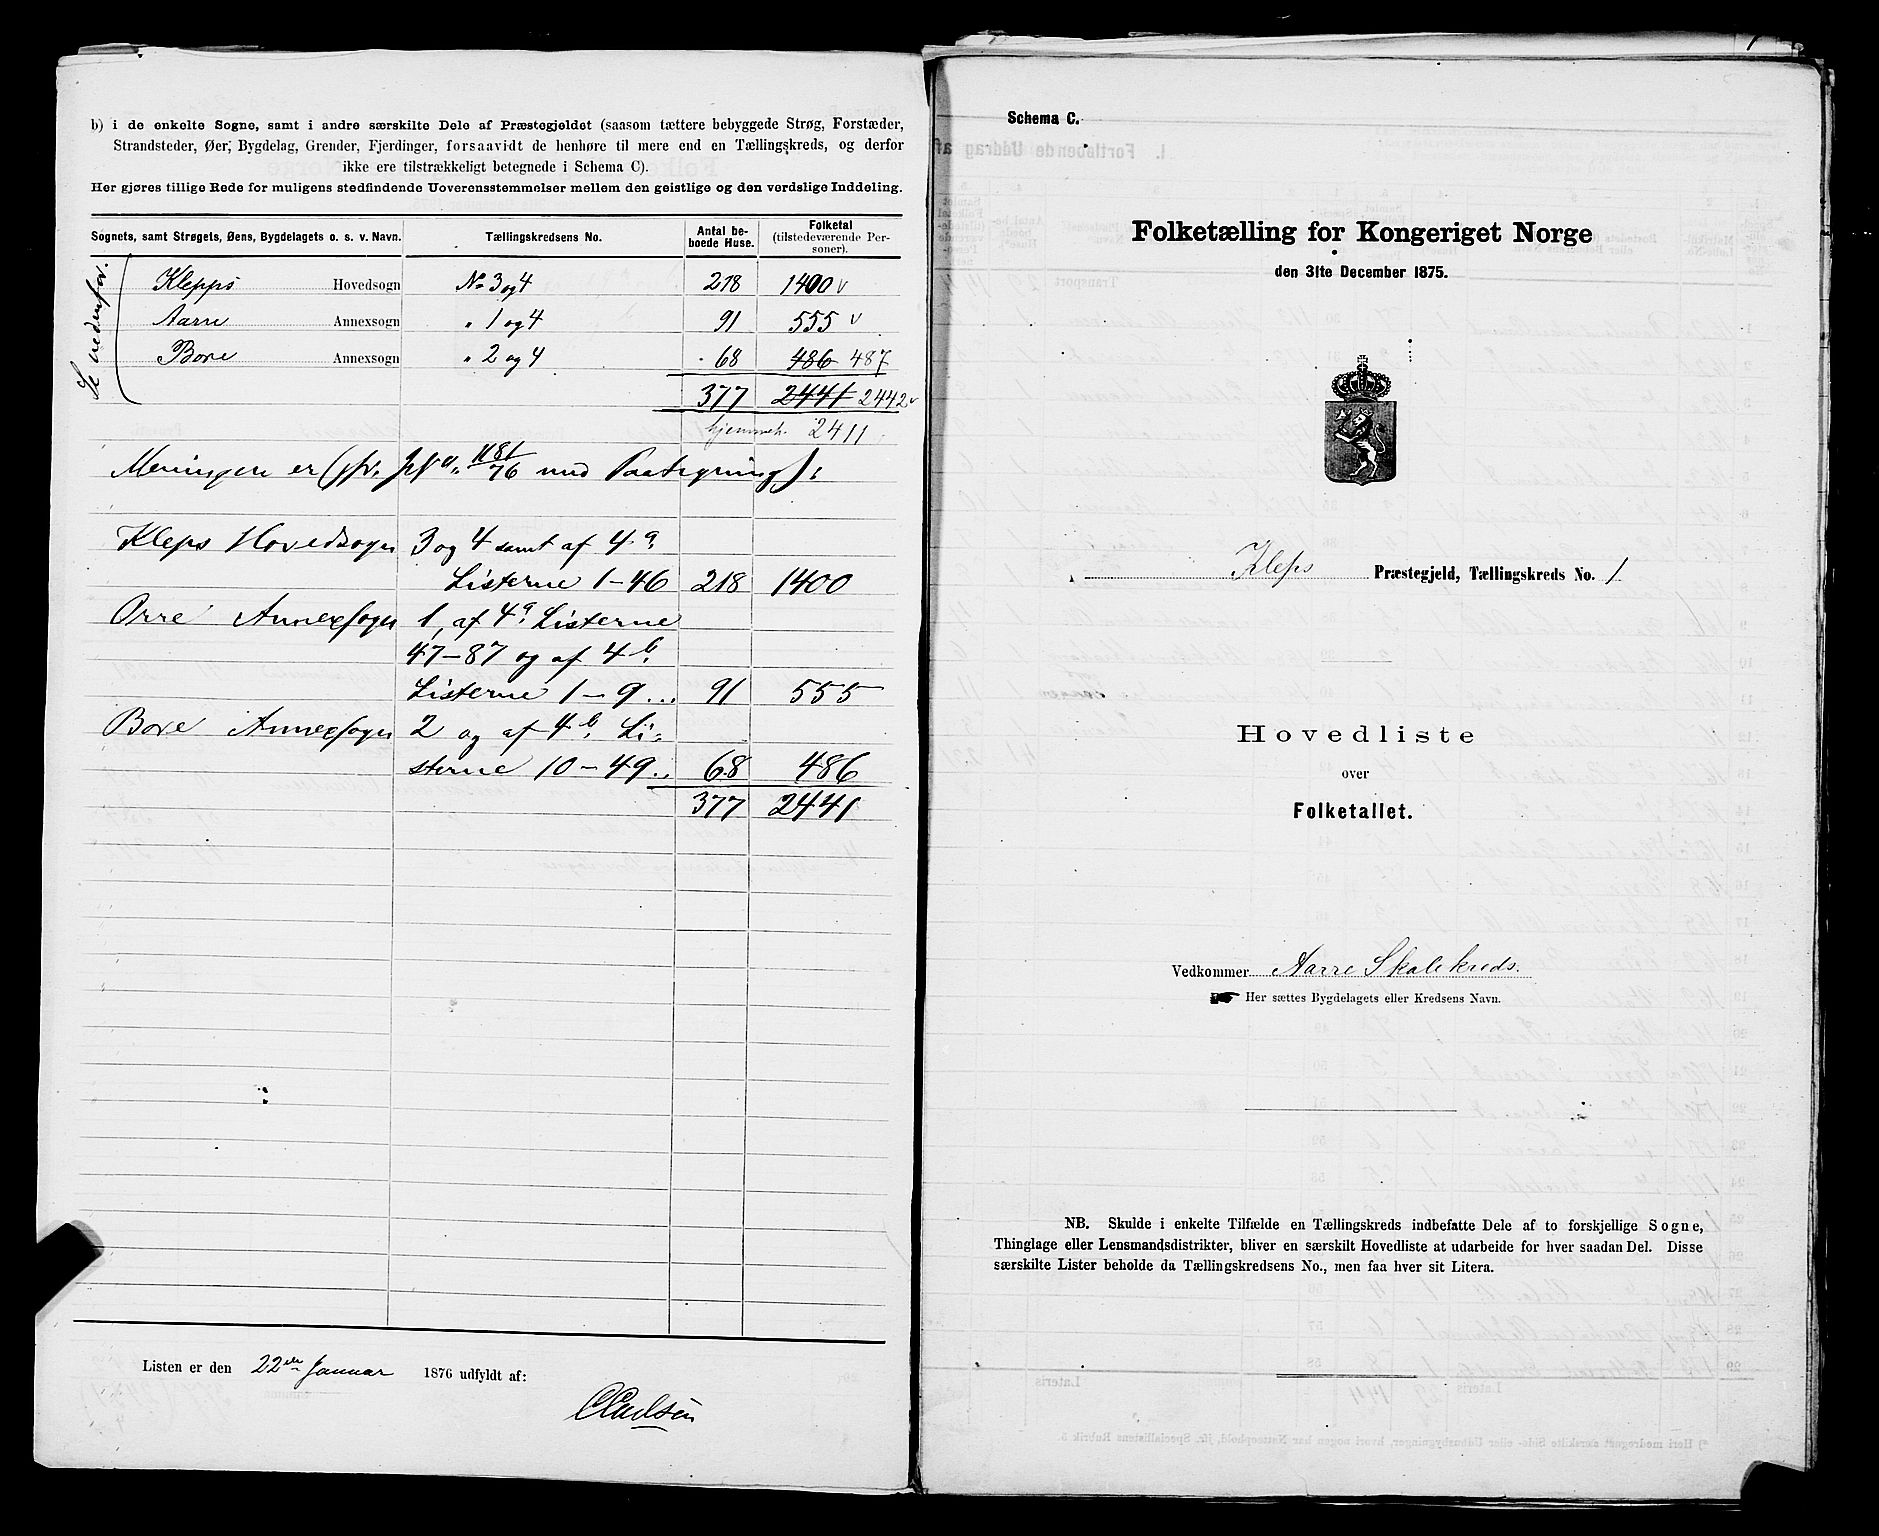 b) i de enkelte Sogne, samt i andre særskilte Dele af Præstegjeldet (saasom tættere bebyggede Strøg, Forstæder,
Strandsteder, Øer, Bygdelag, Grender, Fjerdinger, forsaavidt de henhøre til mere end en Tællingskreds, og derfor
ikke ere tilstrækkeligt betegnede i Schema C).
Her gjøres tillige Rede for muligens stedfindende Uoverensstemmelser mellem den geistlige og den verdslige Inddeling.
Sognets, samt Strøgets, Øens, Bygdelagets o. s. v. Navn. Tællingskredsens No. Antal beboede Huse. Folketal (tilstedeværende Personer).
Se nedenfor.
Klepps Hovedsogn No 3 og 4 218 1400 v
Aarre Annexsogn " 1 og 4 91 555 v
Bore Annexsogn " 2 og 4 68 486 487
377 2441 2442 v
hjemmeh. 2411
Meningen er (jfr. 1181/76 med Paategning):
Kleps Hovedsogn 3 og 4 samt af 4 a.
Listerne 1-46 218 1400
Orre Annexsogn 1, af 4 a. Listerne
47-87 og af 4 b.
Listerne 1-9... 91 555
Bore Annexsogn 2 og af 4 b. Li-
sterne 10-49.. 68 486
377 2441
Listen er den 22de Januar 1876 udfyldt af:
Schema C.
Folketælling for Kongeriget Norge
den 31te December 1875.
Kleps Præstegjeld, Tællingskreds No. 1
Hovedliste
over
Folketallet.
Vedkommer Aarre Skolekreds.
Her sættes Bygdelagets eller Kredsens Navn.
NB. Skulde i enkelte Tilfælde en Tællingskreds indbefatte Dele af to forskjellige Sogne,
Thinglage eller Lensmandsdistrikter, bliver en særskilt Hovedliste at udarbeide for hver saadan Del. Disse
særskilte Lister beholde da Tællingskredsens No., men faa hver sit Litera.